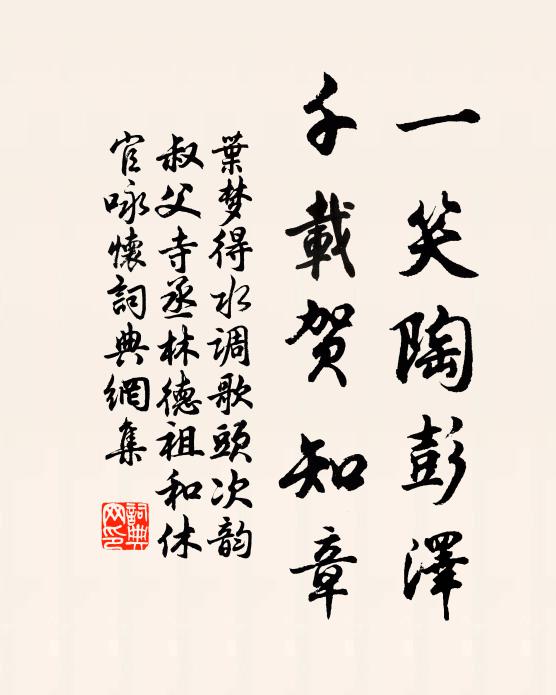 一笑陶彭澤
千載贺知章
葉梦得水调歌頭次韵
叔父寺丞林德祖和休
官咏懷詞典網集
詞典网印